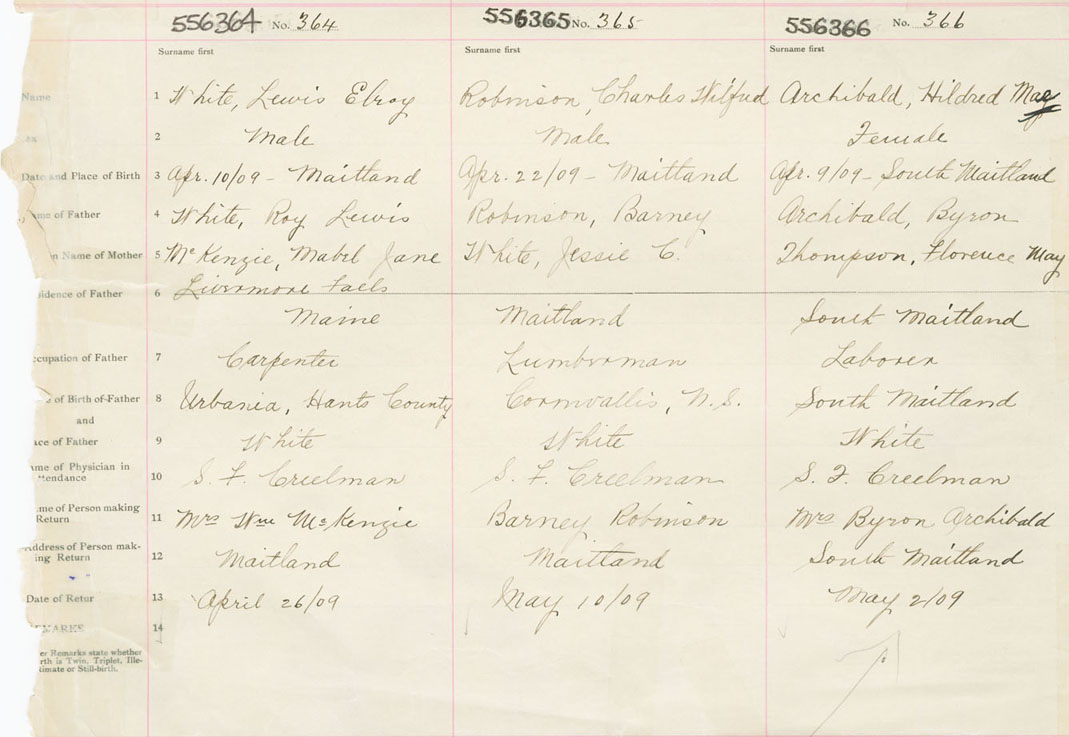 556364 No. 364 556365 No. 365 556366 No. 366
Surname first Surname first Surname first
Name 1 White, Lewis Elroy Robinson, Charles Wilfred Archibald, Hildred May
ex 2 Male Male Female
Date and Place of Birth 3 Apr. 10/09 - Maitland Apr. 22/09 - Maitland Apr. 9/09 - South Maitland
ame of Father 4 White, Roy Lewis Robinson, Barney Archibald, Byron
n Name of Mother 5 McKenzie, Mabel Jane White, Jessie C. Thompson, Florence May
sidence of Father 6 Livermore Falls
Maine Maitland South Maitland
ccupation of Father 7 Carpenter Lumberman Laborer
e of Birth of Father 8 Urbania, Hants County Cornwallis, N.S. South Maitland
and
ace of Father 9 White White White
ame of Physician in
ttendance 10 S. F. Creelman S. F. Creelman S. F. Creelman
ame of Person making
Return 11 Mrs Wm McKenzie Barney Robinson Mrs Byron Archibald
Address of Person mak-
ing Return 12 Maitland Maitland South Maitland
Date of Retur 13 April 26/09 May 10/09 May 2/09
EMARKS 14
er Remarks state whether
rth is Twin, Triplet, Ille-
timate or Still-birth.